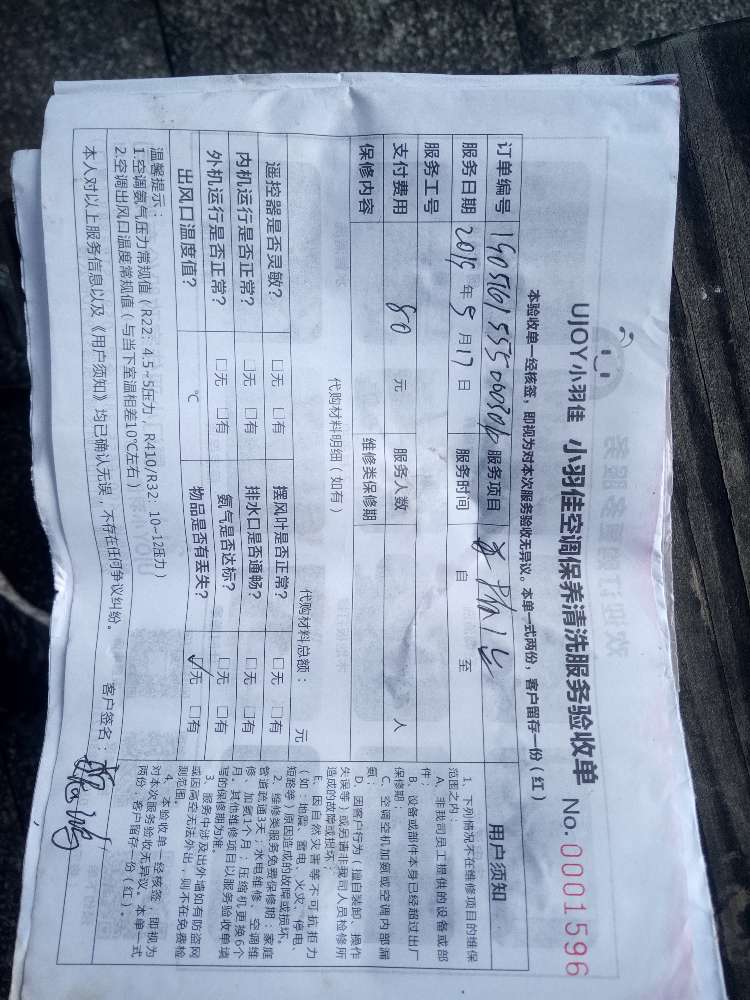 UJOY小羽佳 小羽佳空调保养清洗服务验收单 No. 0001596
本验收单一经核签，即视为对本次服务验收无异议。本单一式两份，客户留存一份（红）
订单编号 服务项目
服务日期 2019年5月17日 服务时间 自 至
服务工号
支付费用 80 元 服务人数 人
保修内容 维修类保修期
代购材料明细（如有） 代购材料总额： 元
遥控器是否灵敏？ □无 □有 摆风叶是否正常？ □无 □有
内机运行是否正常？ □无 □有 排水口是否通畅？ □无 □有
外机运行是否正常？ □无 □有 氨气是否达标？ □无 □有
出风口温度值？ ℃ 物品是否有丢失？ ☑无 □有
温馨提示：
1.空调氨气压力常规值（R22：4.5~5压力，R410/R32：10-12压力）
2.空调出风口温度常规值（与当下室温相差10℃左右）
本人对以上服务信息以及《用户须知》均已确认无误，不存在任何争议纠纷。 客户签名：
用户须知
1、下列情况不在维修项目的维保
范围之内：
A、非我司员工提供的设备或部
件；
B、设备或部件本身已经超过出厂
保修期；
C、空调空机加氨或空调内部漏
氨；
D、因客户行为（擅自装卸、操作
失误等）或另请非我司人员检修所
造成的故障或损坏；
E、因自然灾害等不可抗拒力
（如：地震、雷电、火灾、停电、
短路等）原因造成的故障或损坏。
2、维修类服务免费保修期：家庭
管道疏通3天；水电维修、空调维
修、加氨1个月；压缩机更换6个
月。其他维修项目以服务验收单填
写的保修期为准。
3、服务中涉及出外墙如有防盗网
或因高空无法外出，则不在免费检
测范围。
4、本验收单一经核签，即视为
对本次服务验收无异议。本单一式
两份，客户留存一份（红）。